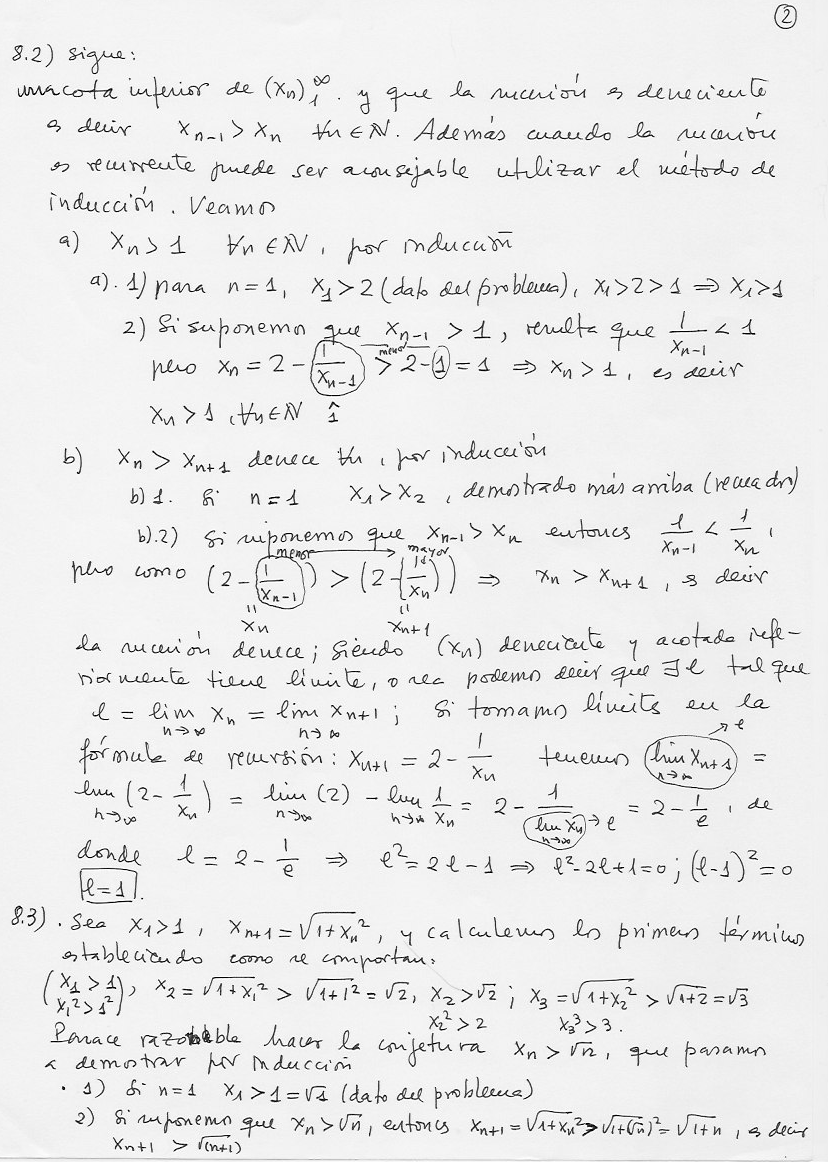 ②
8.2) sigue:
una cota inferior de (xₙ)₁^∞. y que la sucesión es decreciente
es decir xₙ₋₁ > xₙ ∀n ∈ ℕ. Además cuando la sucesión
es recurrente puede ser aconsejable utilizar el método de
inducción. Veamos
a) xₙ > 1 ∀n ∈ ℕ, por inducción
a). 1) para n=1, x₁ > 2 (dato del problema), x₁ > 2 > 1 ⇒ x₁ > 1
2) Si suponemos que xₙ₋₁ > 1, resulta que 1/xₙ₋₁ < 1
menos
pero xₙ = 2 - 1/xₙ₋₁ > 2 - 1 = 1 ⇒ xₙ > 1, es decir
xₙ > 1, ∀n ∈ ℕ 1
b) xₙ > xₙ₊₁ decrece ∀n, por inducción
b) 1. Si n=1 x₁ > x₂, demostrado más arriba (recuadro)
b).2) Si suponemos que xₙ₋₁ > xₙ entonces 1/xₙ₋₁ < 1/xₙ,
menor → mayor
pero como (2 - 1/xₙ₋₁) > (2 - (1/xₙ)) ⇒ xₙ > xₙ₊₁, es decir
॥ xₙ ॥ xₙ₊₁
la sucesión decrece; siendo (xₙ) decreciente y acotada infe-
riormente tiene límite, o sea podemos decir que ∃ l tal que
l = lim n→∞ xₙ = lim n→∞ xₙ₊₁; si tomamos límites en la
fórmula de recursión: xₙ₊₁ = 2 - 1/xₙ tenemos lim n→∞ xₙ₊₁ → l =
lim n→∞ (2 - 1/xₙ) = lim n→∞ (2) - lim n→∞ 1/xₙ = 2 - 1/(lim n→∞ xₙ) → l = 2 - 1/l, de
donde l = 2 - 1/l ⇒ l² = 2l - 1 ⇒ l² - 2l + 1 = 0; (l-1)² = 0
l = 1.
8.3). Sea x₁ > 1, xₙ₊₁ = √(1+xₙ²), y calculemos los primeros términos
estableciendo como se comportan:
(x₁ > 1, x₁² > 1²), x₂ = √(1+x₁²) > √(1+1²) = √2, x₂ > √2; x₃ = √(1+x₂²) > √(1+2) = √3
x₂² > 2 x₃³ > 3.
Parace razonable hacer la conjetura xₙ > √n, que pasamos
a demostrar por inducción
· 1) Si n=1 x₁ > 1 = √1 (dato del problema)
2) Si suponemos que xₙ > √n, entonces xₙ₊₁ = √(1+xₙ²) > √(1+(√n)²) = √(1+n), es decir
xₙ₊₁ > √(n+1)